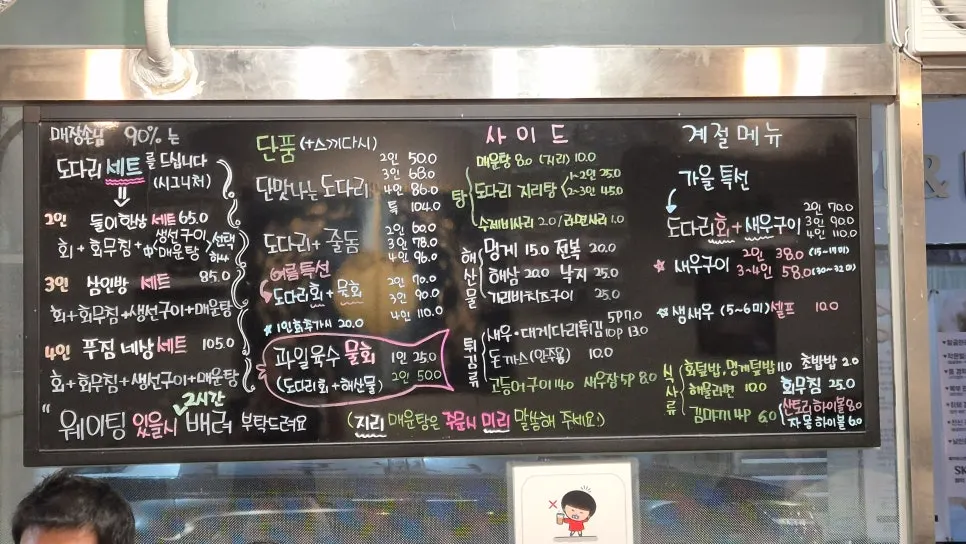 매장손님 90%는
도다리 세트를 드십니다
(시그니처)
2인 둘이한상 세트 65.0
회 + 회무침 + 생선구이 中 매운탕 선택 하나
3인 삼인방 세트 85.0
회 + 회무침 + 생선구이 + 매운탕
4인 푸짐 네상 세트 105.0
회 + 회무침 + 생선구이 + 매운탕
단품 (+스끼다시)
단맛나는 도다리
2인 50.0
3인 68.0
4인 86.0
특 104.0
도다리 + 줄돔
2인 60.0
3인 78.0
4인 96.0
여름특선
도다리회 + 물회
2인 70.0
3인 90.0
4인 110.0
20.0
과일육수 물회 1인 25.0
(도다리회 + 해산물) 2인 50.0
사이드
탕
매운탕 8.0 (지리) 10.0
도다리 지리탕
1~2인 25.0
2~3인 45.0
수제비사리 2.0 / 라면사리 1.0
해산물
멍게 15.0 전복 20.0
해삼 20.0 낙지 25.0
가리비치즈구이 25.0
튀김류
새우·대게다리튀김 5P 7.0
10P 13.0
돈까스 10.0
고등어구이 14.0 새우장 5P 8.0
계절메뉴
가을 특선
도다리회 + 새우구이
2인 70.0
3인 90.0
4인 110.0
새우구이 2인 38.0
3~4인 58.0 (30~32미)
생새우 (5~6미) 셀프 10.0
식사류
회덮밥, 멍게덮밥 11.0 초밥밥 2.0
해물라면 10.0 회무침 25.0
4P 6.0 산토리 하이볼 8.0
자몽 하이볼 6.0
2시간
" 웨이팅 있을시 배려 부탁드려요 (지리 매운탕은 주문시 미리 말씀해 주세요!)